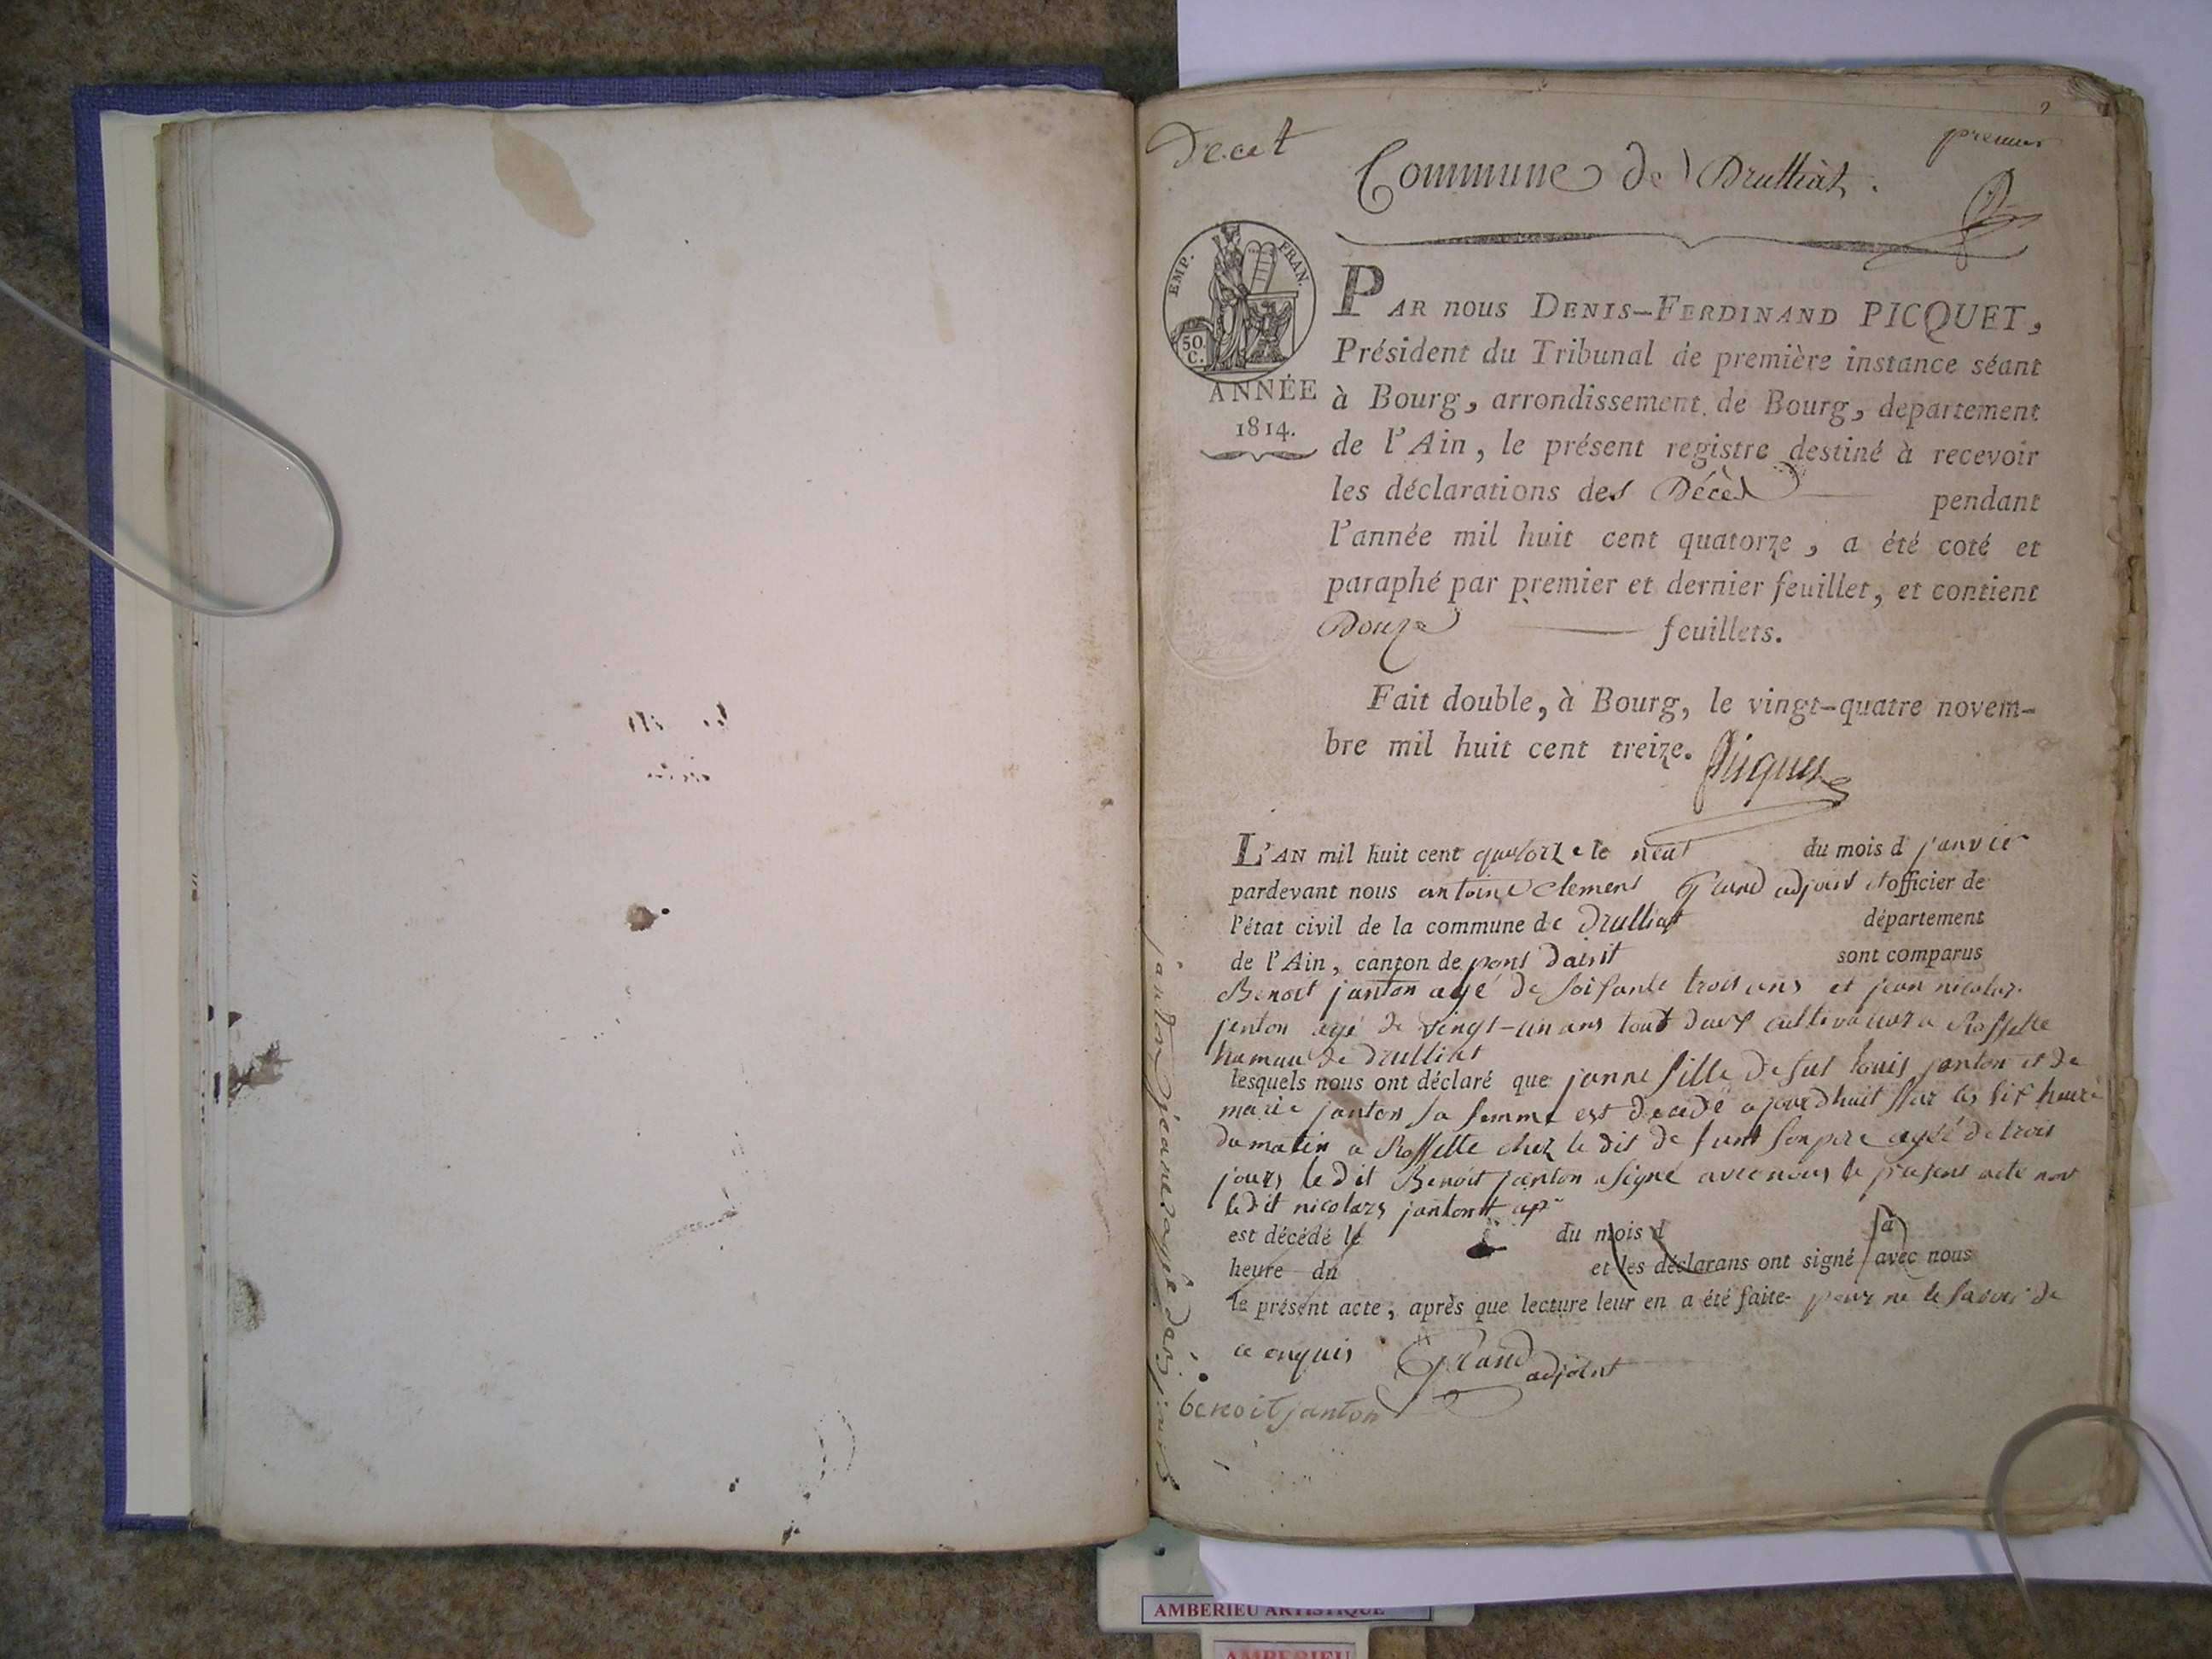 Decet
premier
Commune de Drulliat.
EMP. FRAN.
50 C.
ANNÉE
1814.
PAR nous DENIS-FERDINAND PICQUET,
Président du Tribunal de première instance séant
à Bourg, arrondissement de Bourg, departement
de l'Ain, le présent registre destiné à recevoir
les déclarations des Décès pendant
l'année mil huit cent quatorze, a été coté et
paraphé par premier et dernier feuillet, et contient
Douze feuillets.
Fait double, à Bourg, le vingt-quatre novem-
bre mil huit cent treize. Picquet
L'AN mil huit cent quatorze le neuf du mois d janvier
pardevant nous antoine Clement Grand adjoint et officier de
l'état civil de la commune de Drulliat département
de l'Ain, canton de pont dain sont comparus
Benoit janton agé de soisante trois ans et jean nicolas
janton agé de vingt-un ans tout deux cultivateur a Rossette
hameau de drulliat
lesquels nous ont déclaré que janne fille de fut louis janton et de
marie janton sa femme est decedé ajourdhuit sur les six heure
du matin a Rossette chez le dit de funt son pere agéé de trois
jours le dit Benoit janton a signé avec nous le present acte non
le dit nicolas janton
est décédé le du mois d à
heure du et les déclarans ont signé avec nous
le présent acte, après que lecture leur en a été faite pour ne le savoir de
ce enquis Grand adjoint
benoit janton
janton jeanne agée de trois jours
AMBERIEU ARTISTIQUE
AMBERIEU